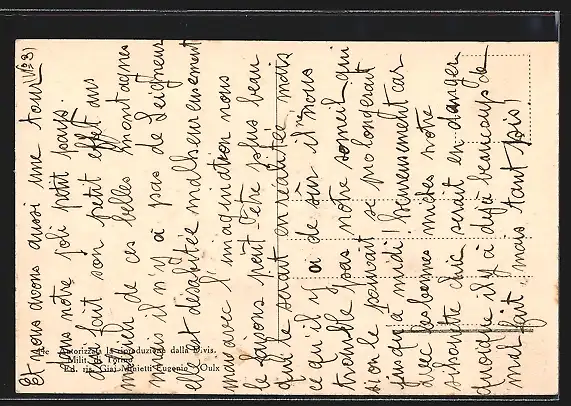 Et nous avons aussi une tour (N°3)
dans notre joli petit pays.
qui fait son petit effet au
milieu de ces belles montagnes
mais il n'y a pas de Seigneur
elle est désafitée malheureusement
mais avec l'imagination nous
le faisons peut-être plus beau
que le serait en réalité mais
ce qu'il y a de sûr il ne nous
trouble pas notre someil qui
si on le pouvait se prolongerait
jusqu'à midi! heureusement car
avec les bonnes miches notre
silhouette chic serait en danger
quoiqu'il y a déjà beaucoup de
mal fait mais tant pis!
Autorizzata la riproduzione dalla Divis.
Milit. di Torino
Ed. ris. Giai Minietti Eugenio - Oulx